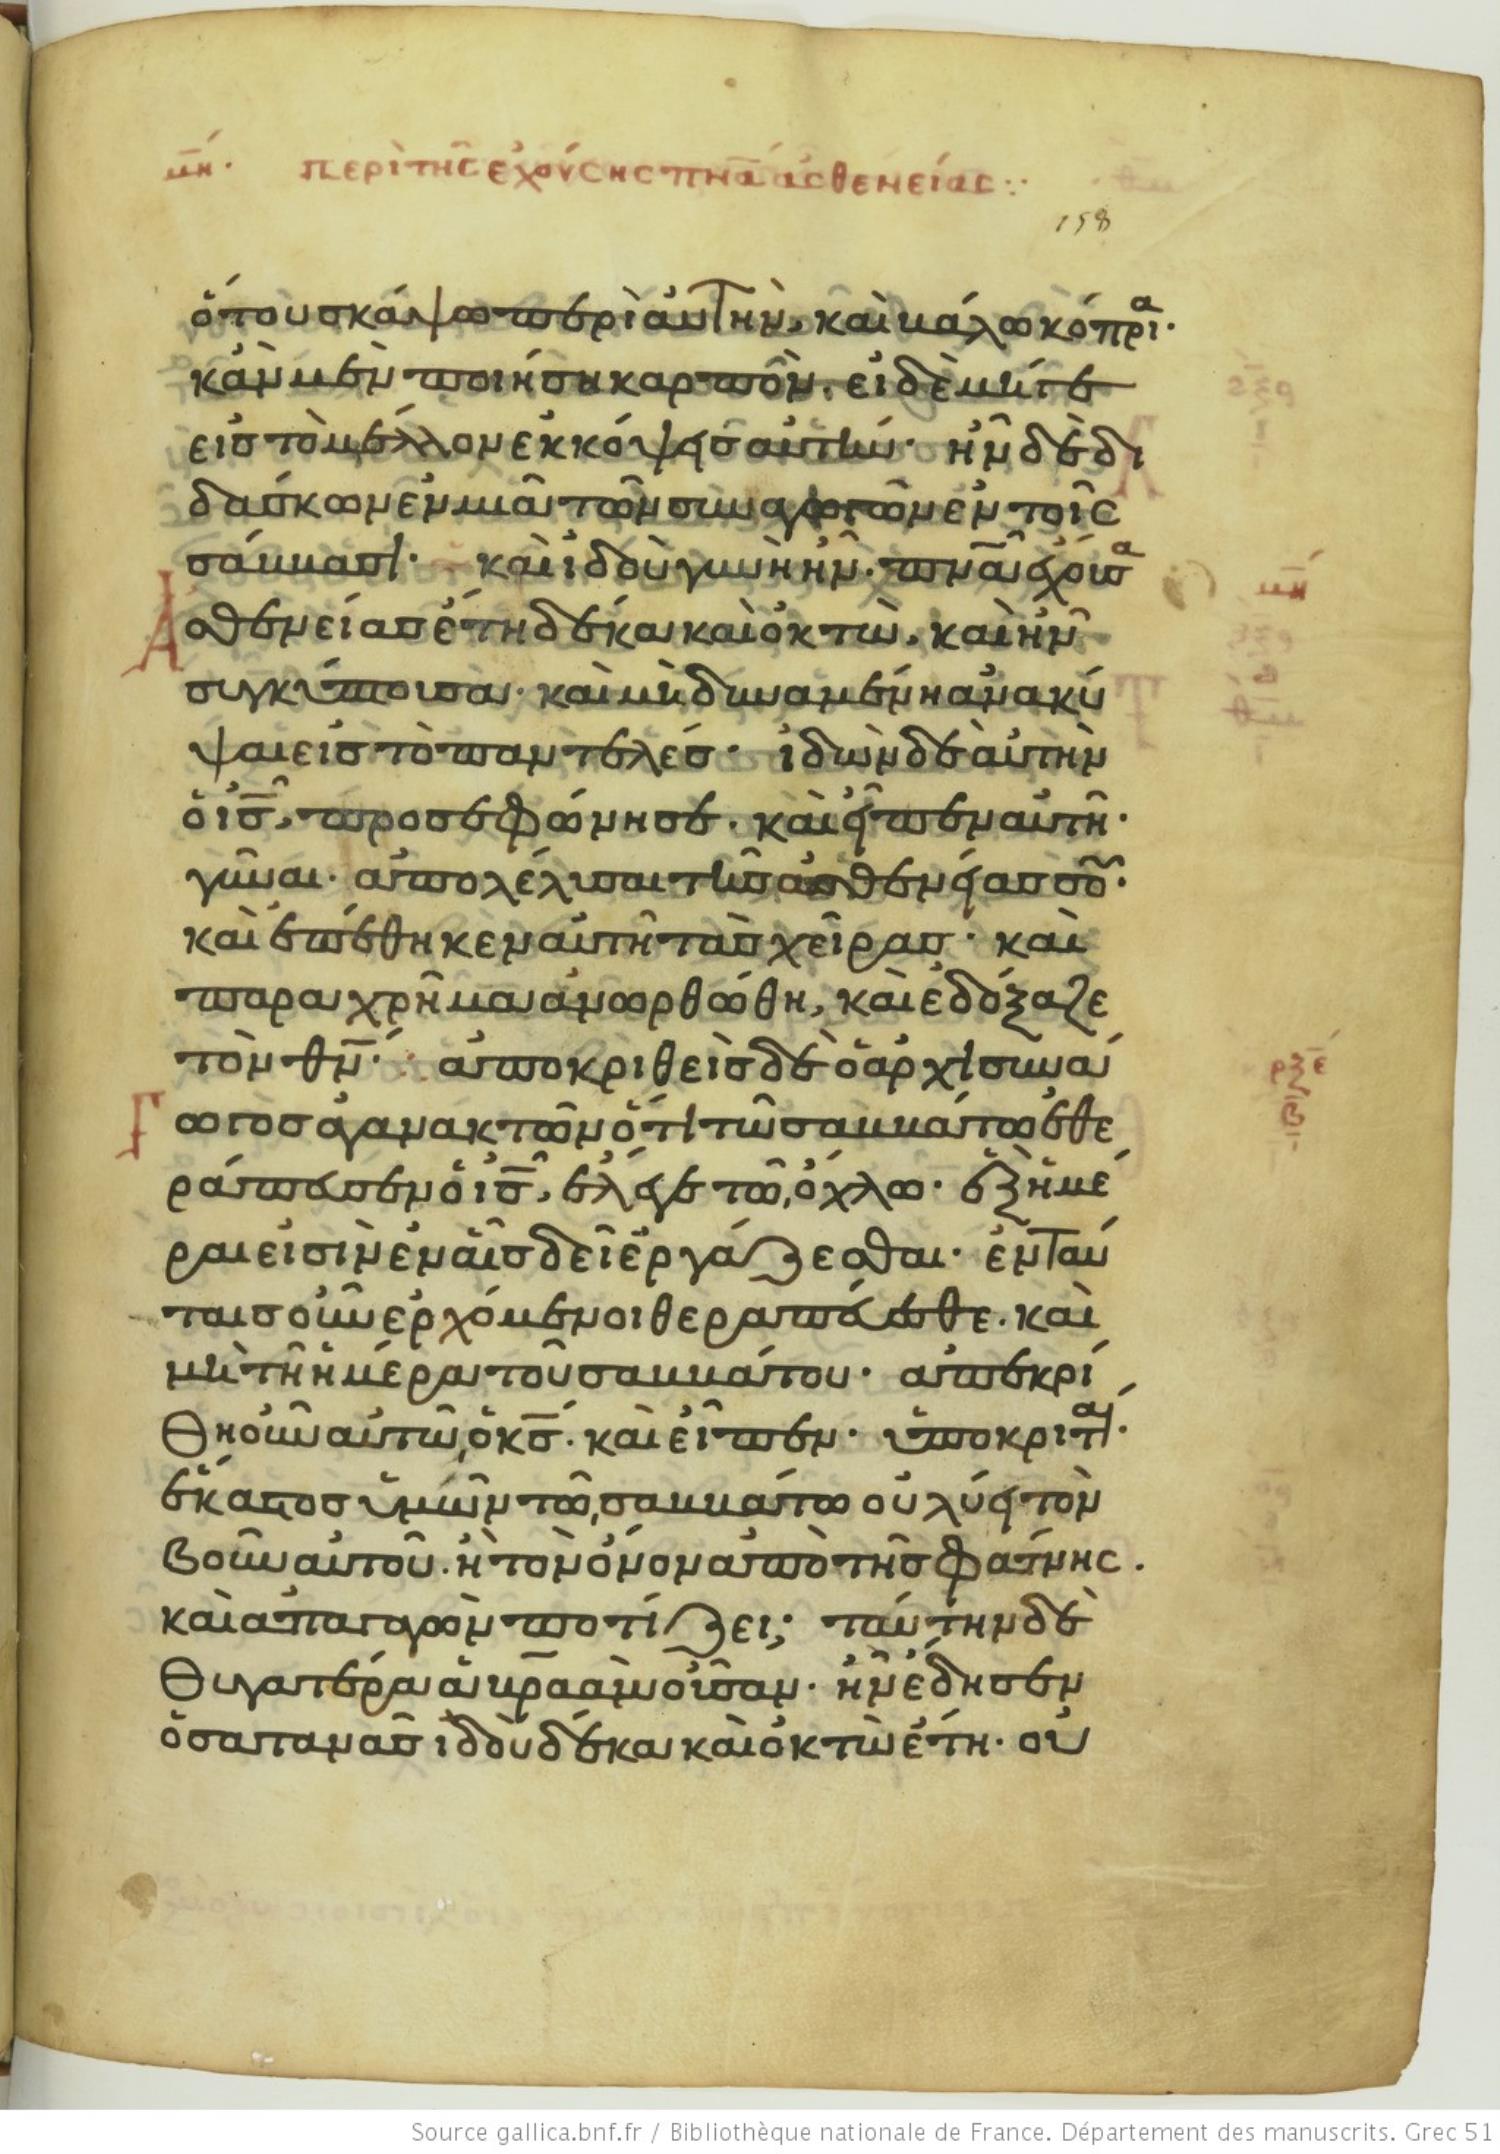 μη· περὶ τῆς ἐχούσης πνᾱ ἀσθενείας:·
158
ὅτου σκάψω περὶ αὐτὴν, καὶ βάλω κόπρια·
κἂν μὲν ποιήσῃ καρπὸν. εἰ δὲ μή γε
εἰς τὸ μέλλον ἐκκόψεις αὐτήν· ἦν δὲ δι
δάσκων ἐν μιᾷ τῶν συναγωγῶν ἐν τοῖς
σάββασι· καὶ ἰδοὺ γυνὴ ἦν· πνᾱ ἔχουσα
ἀσθενείας ἔτη δέκα καὶ ὀκτὼ, καὶ ἦν
συγκύπτουσα· καὶ μὴ δυναμένη ἀνακύ
ψαι εἰς τὸ παντελές· ἰδὼν δὲ αὐτὴν
ὁ ις̅, προσεφώνησε. καὶ εἶπεν αὐτῇ·
γύναι· ἀπολέλυσαι τῆς ἀσθενείας σου·
καὶ ἐπέθηκεν αὐτῇ τὰς χεῖρας· καὶ
παραχρῆμα ἀνωρθώθη, καὶ ἐδόξαζε
τὸν θν̅· ἀποκριθεὶς δὲ ὁ ἀρχισυνά
γωγος ἀγανακτῶν ὅτι τῷ σαββάτω ἐθε
ράπευσεν ὁ ις̅, ἔλεγε τῷ ὄχλω· ἓξ ἡμέ
ραι εἰσὶν ἐν αἷς δεῖ ἐργάζεσθαι· ἐν ταύ
ταις οὖν ἐρχόμενοι θεραπεύεσθε. καὶ
μὴ τῇ ἡμέρα τοῦ σαββάτου· ἀπεκρί
θη οὖν αὐτῷ ὁ κς̅· καὶ εἶπεν· ὑποκριταί·
ἕκαστος ὑμῶν τῷ σαββάτω οὐ λύει τὸν
βοῦν αὐτοῦ· ἢ τὸν ὄνον ἀπὸ τῆς φάτνης.
καὶ ἀπαγαγὼν ποτίζει; ταύτην δὲ
θυγατέρα ἀβρααμ οὖσαν· ἣν ἔδησεν
ὁ σατανᾶς ἰδοὺ δέκα καὶ ὀκτὼ ἔτη· οὐ
ρξε
β
Source gallica.bnf.fr / Bibliothèque nationale de France. Département des manuscrits. Grec 51